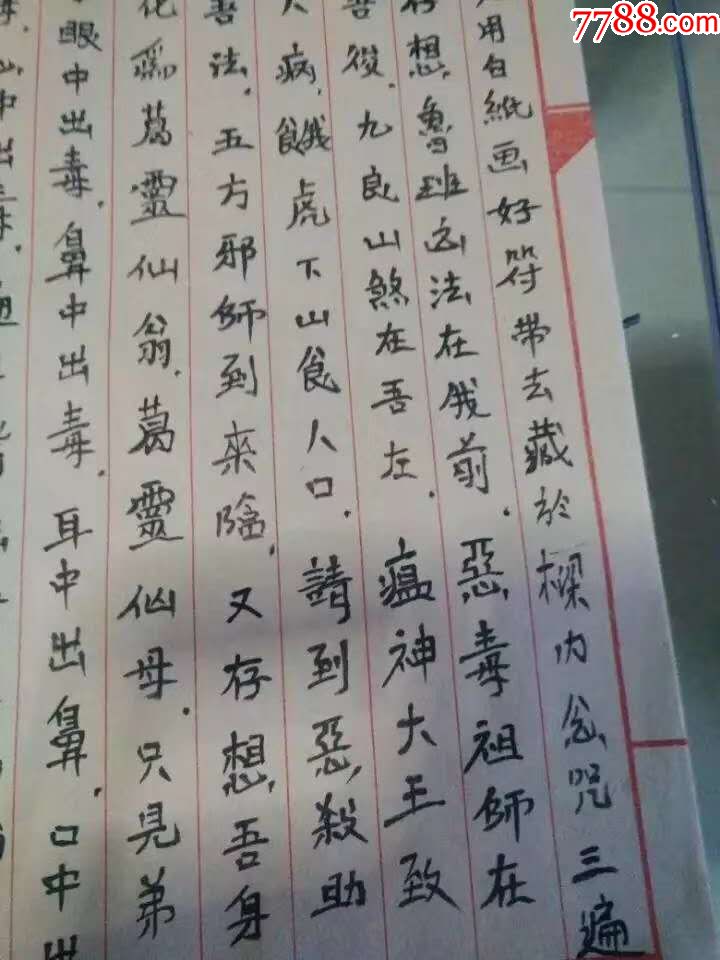 7788.com
用白紙画好符带去藏於樑内念咒三遍
存想魯班的法在我前.惡毒祖師在
吾後.九良山煞在吾左.瘟神大王致
人病.餓虎下山食人口.請到惡殺助
善法.五方邪師到來臨.又存想吾身
化爲葛靈仙翁.葛靈仙母.只見弟
眼中出毒.鼻中出毒.耳中出鼻.口中出
中出毒.